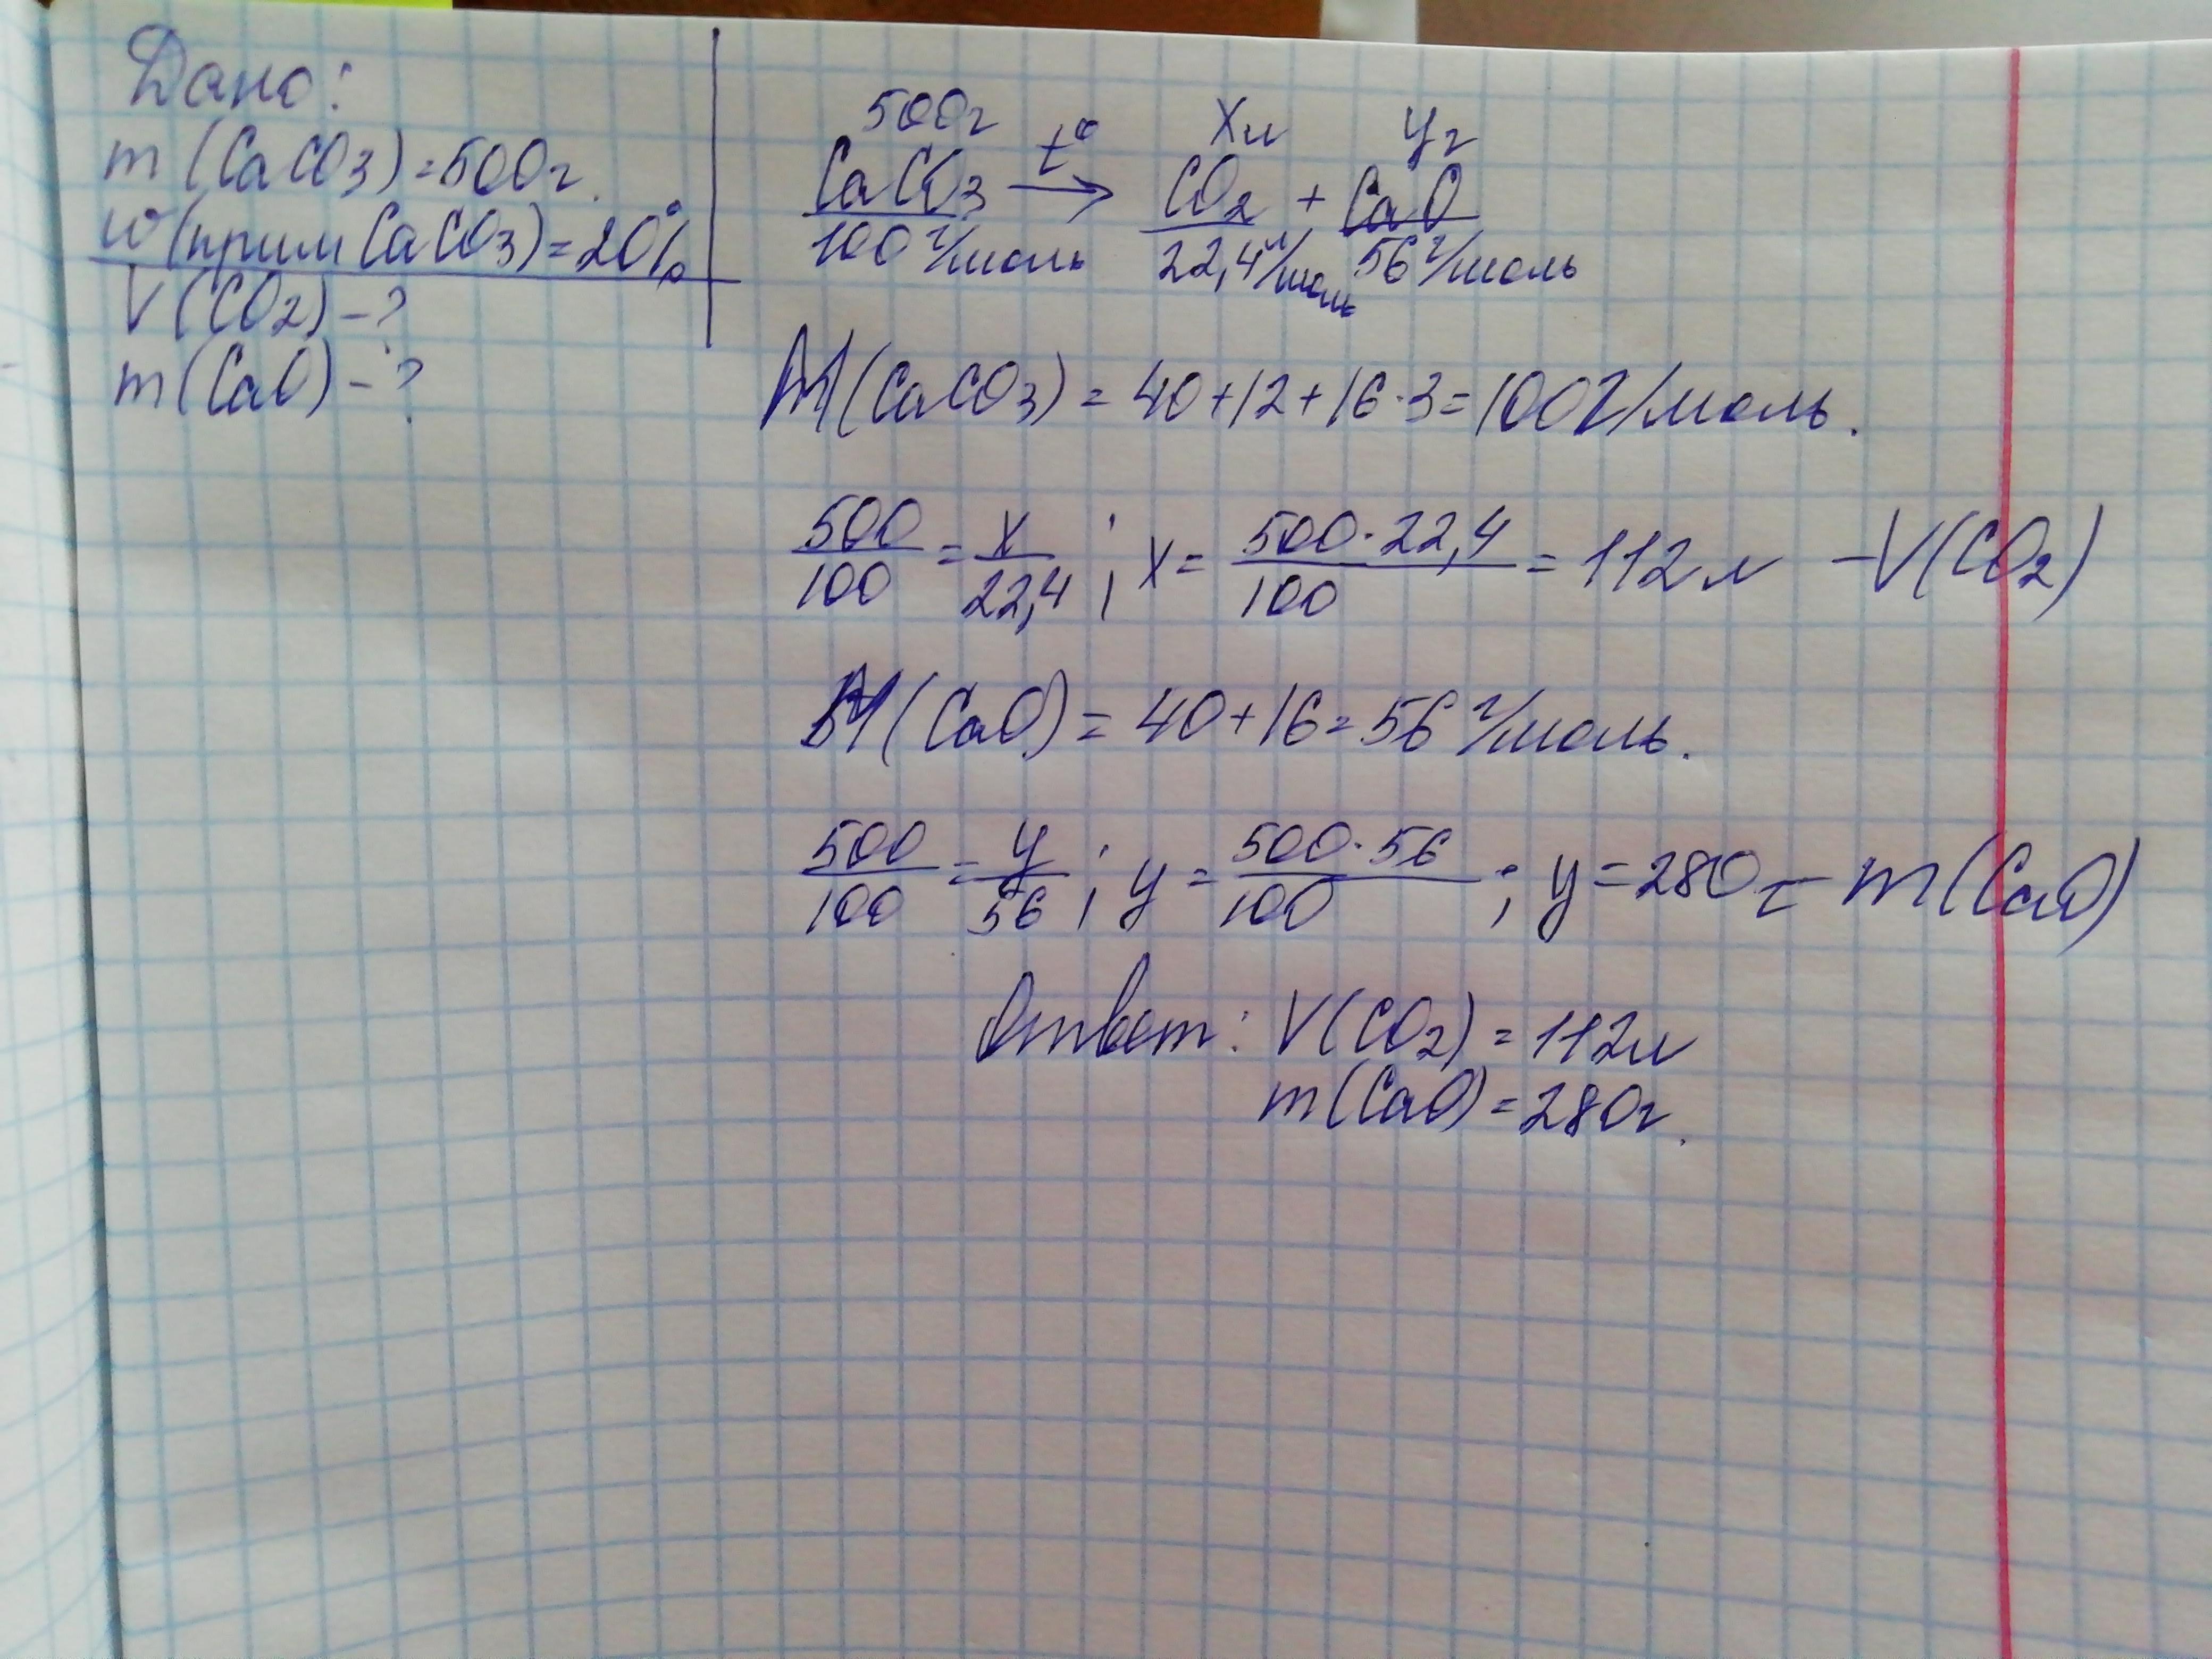 Дано:
m(CaCO3)=500г.
w(прим CaCO3)=20%
V(CO2)-?
m(CaO)-?
500г xл yг
CaCO3 t° → CO2 + CaO
100 г/моль 22,4 л/моль 56 г/моль
M(CaCO3) = 40+12+16·3=100г/моль.
500/100 = x/22,4 ; x = 500·22,4/100 = 112 л - V(CO2)
M(CaO) = 40+16=56 г/моль.
500/100 = y/56 ; y = 500·56/100 ; y=280г - m(CaO)
Ответ: V(CO2) = 112л
m(CaO)=280г.